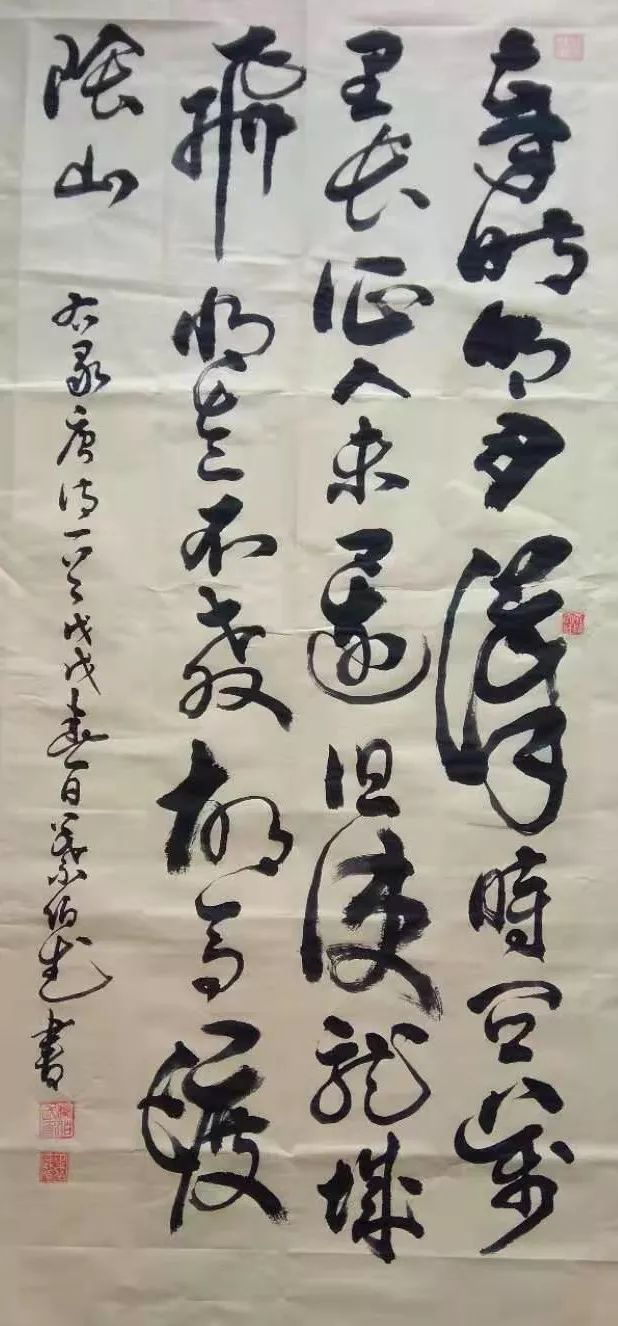 秦時明月漢時關萬
里長征人未還但使龍城
飛將在不教胡馬渡
陰山
右录唐诗一首戊戌春日伯武書